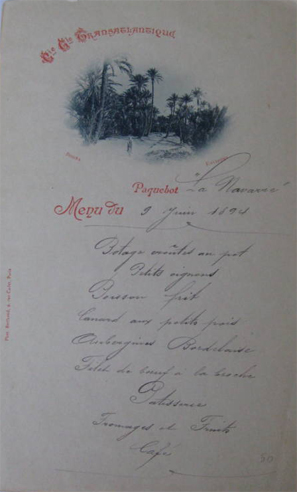 Cie Gle Transatlantique
Paquebot "La Navarre"
Menu du 9 Juin 1894
Potage croûtes au pot
Petits oignons
Poisson frit
Canard aux petits pois
Aubergines Bordelaise
Filet de bœuf à la broche
Patisserie
Fromages et Fruits
Café